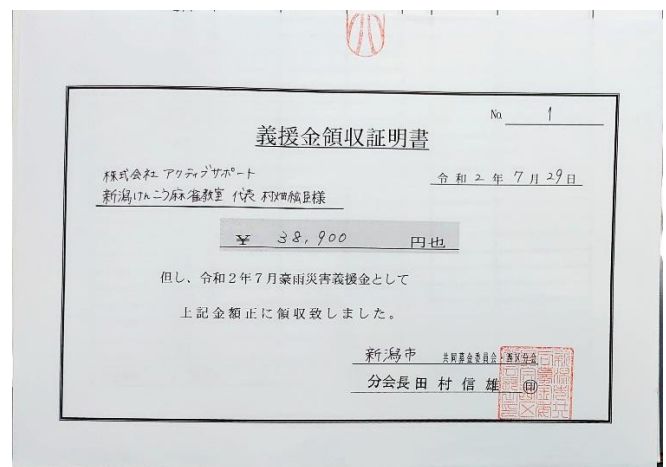 No. 1
義援金領収証明書
令和2年7月29日
株式会社 アクティブサポート
新潟けんこう麻雀教室 代表 村畑 様
¥ 38,900 円也
但し、令和2年7月豪雨災害義援金として
上記金額正に領収致しました。
新潟市 共同募金委員会・西区分会
分会長 田村信雄 ㊞